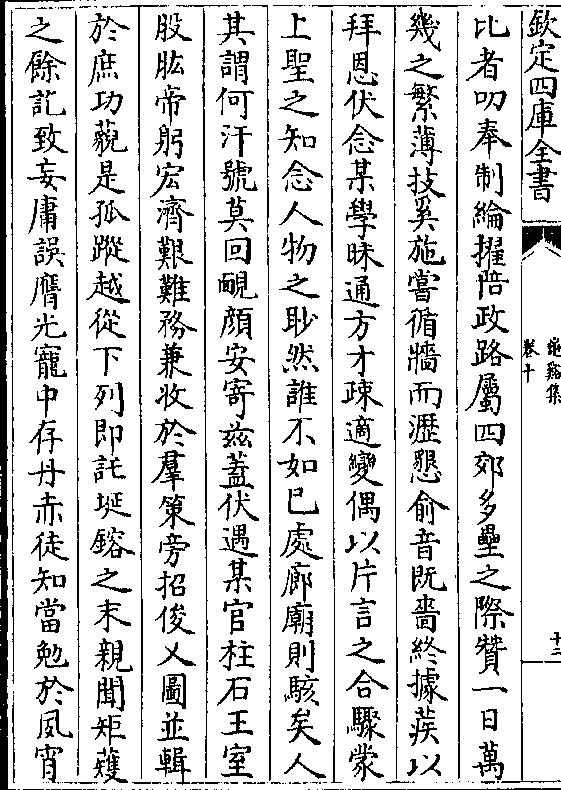 欽定四庫全書
龜谿集
卷十
十二
比者叨奉制綸擢陪政路屬四郊多壘之際贊一日萬
幾之繁薄技奚施嘗循牆而瀝懇俞音既嗇終據蒺以
拜恩伏念某學昧通方才疎適變偶以片言之合驟蒙
上聖之知念人物之眇然誰不如已處廊廟則駭矣人
其謂何汗號莫回靦顔安寄兹蓋伏遇某官柱石王室
股肱帝躬宏濟艱難務兼收於羣策旁招俊乂圖並輯
於庶功藐是孤蹤越從下列即託埏鎔之末親聞矩蒦
之餘訖致妄庸誤膺光寵中存丹赤徒知當勉於夙宵